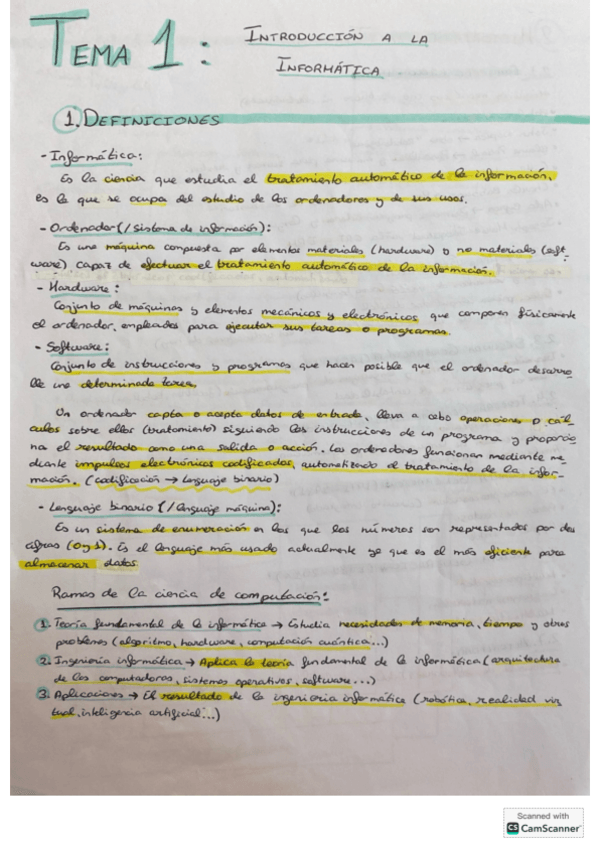 TEMA 1:
INTRODUCCIÓN A LA
INFORMÁTICA
1. DEFINICIONES
- Informática:
Es la ciencia que estudia el tratamiento automático de la información,
es la que se ocupa del estudio de los ordenadores y de sus usos.
- Ordenador (/ sistema de información):
Es una máquina compuesta por elementos materiales (hardware) y no materiales (soft-
ware) capaz de efectuar el tratamiento automático de la información.
- Hardware:
Conjunto de máquinas y elementos mecánicos y electrónicos que componen físicamente
el ordenador, empleados para ejecutar sus tareas o programas.
- Software:
Conjunto de instrucciones y programas que hacen posible que el ordenador desarro-
lle una determinada tarea.
Un ordenador capta o acepta datos de entrada, lleva a cabo operaciones o cál-
culos sobre ellos (tratamiento) siguiendo las instrucciones de un programa y proporcio-
na el resultado como una salida o acción. Los ordenadores funcionan mediante me-
diante impulsos electrónicos codificados, automatizando el tratamiento de la infor-
mación. (codificación → lenguaje binario)
- Lenguaje binario (/ lenguaje máquina):
Es un sistema de enumeración en los que los números son representados por dos
cifras (0 y 1). Es el lenguaje más usado actualmente ya que es el más eficiente para
almacenar datos.
Ramas de la ciencia de computación:
1. Teoría fundamental de la informática → Estudia necesidades de memoria, tiempo y otros
problemas (algoritmo, hardware, computación cuántica...)
2. Ingeniería informática → Aplica la teoría fundamental de la informática (arquitectura
de los computadoras, sistemas operativos, software...)
3. Aplicaciones → El resultado de la ingeniería informática (robótica, realidad vir-
tual, inteligencia artificial...)
Scanned with
CS CamScanner